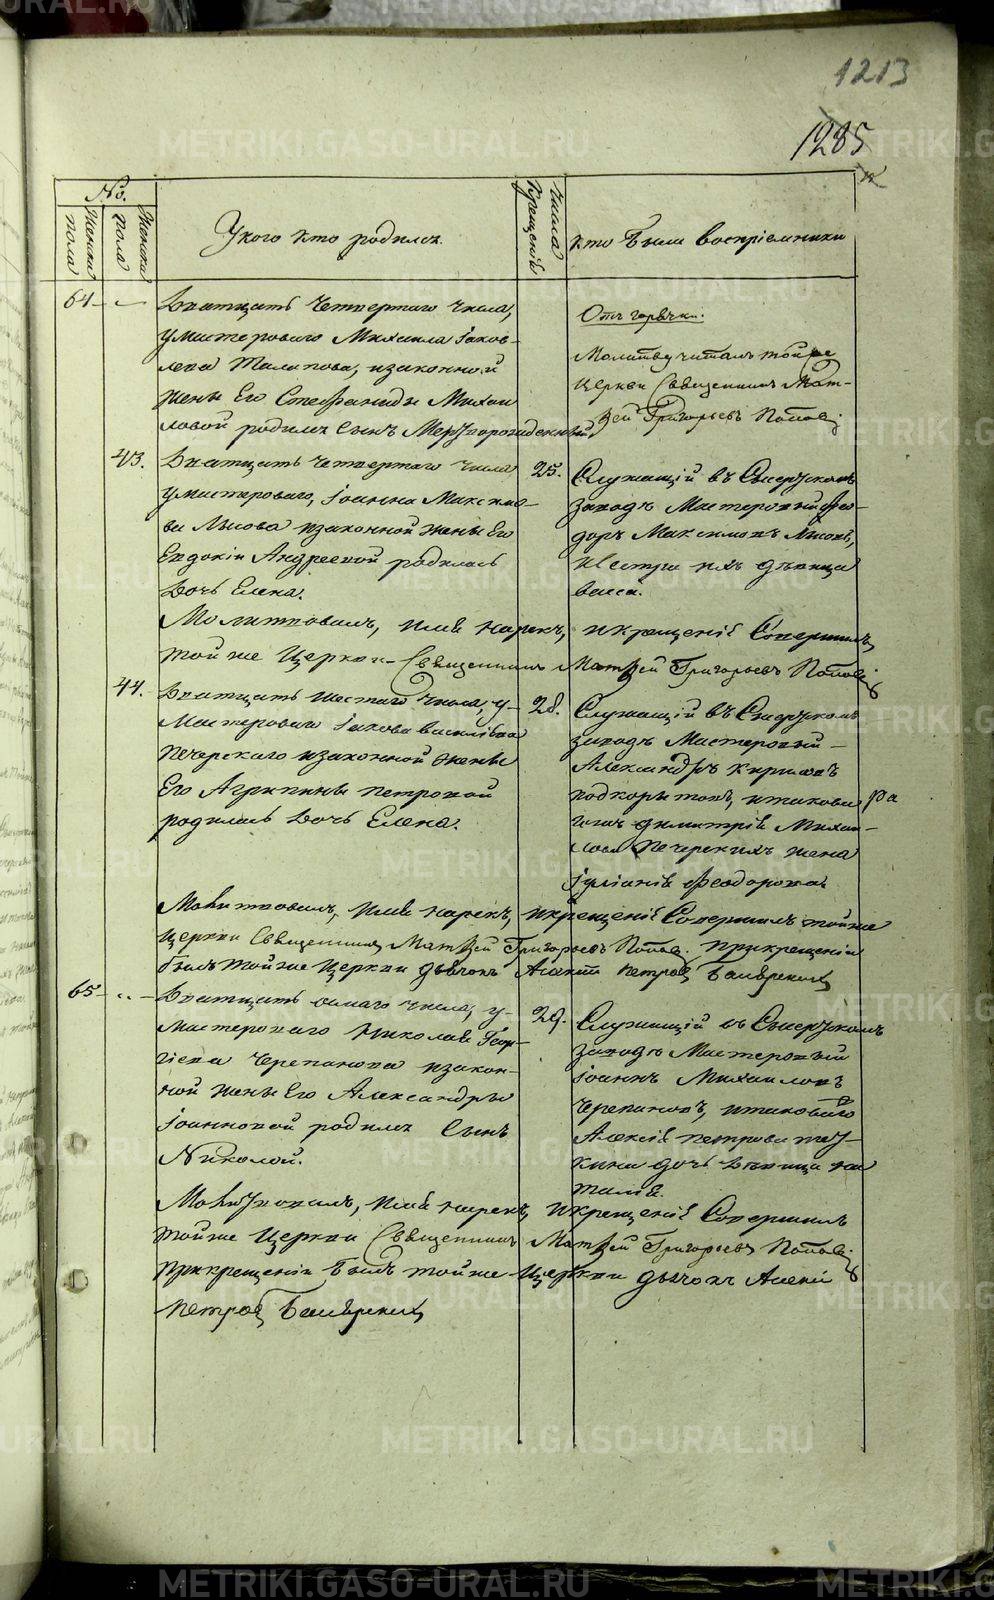 1213
1285
No.
Женска пола
Женска пола
У кого кто родился.
Числа Крещенiй
Кто были воспрiемники
64
Дватцать четвертаго числа,
у мастероваго Михаила Iаков-
лева Талипова, изаконной
жены Его Стефаниды Михаи
ловой родился Сынъ Мертворожденный
Отъ горячки.
Молитву читалъ той же
Церкви Священникъ Мат-
вей Григорьевъ Поповъ
43.
Дватцать четвертаго числа
у мастероваго, Iоанна Максимо-
ва Лысова изаконной жены Его
Евдокiи Андреевой родилась
Дочь Елена.
25.
Служащiй въ
заводѣ Мастеровый Фео-
доръ Максимовъ Лысовъ,
и Сестра ихъ дѣвица
Васса.
Молитвовалъ, имя нарекъ, и крещенiе Совершилъ
той же Церкви Священникъ Матвей Григорьевъ Поповъ
44.
Дватцать шестаго числа, у
Мастероваго Iакова Василiева
Печерскаго изаконной жены
Его Агрипины Петровой
родилась Дочь Елена.
28.
Служащiй въ
заводѣ Мастеровый
Александръ Кириловъ
Подкорытовъ, и таковаго
Димитрiя Михаи-
лова Печерскихъ жена
Iулiанiя Феодорова
Молитвовалъ, имя нарекъ, и крещенiе Совершилъ той же
Церкви Священникъ Матвей Григорьевъ Поповъ. При крещенiи
былъ той же Церкви дьячокъ Алексiй Петровъ
65
Дватцать осмаго числа, у
Мастероваго Николая Геор-
гiева Черепанова изакон-
ной жены Его Александры
Iоанновой родился Сынъ
Николай.
29.
Служащiй въ
заводѣ Мастеровый
Iоаннъ Михаиловъ
Черепановъ, и таковаго
Алексiя Петрова
дочь Дѣвица На
талiя.
Молитвовалъ, имя нарекъ, и крещенiе Совершилъ
той же Церкви Священникъ Матвей Григорьевъ Поповъ
При крещенiи былъ той же Церкви дьячокъ Алексiй
Петровъ
METRIKI.GASO-URAL.RU